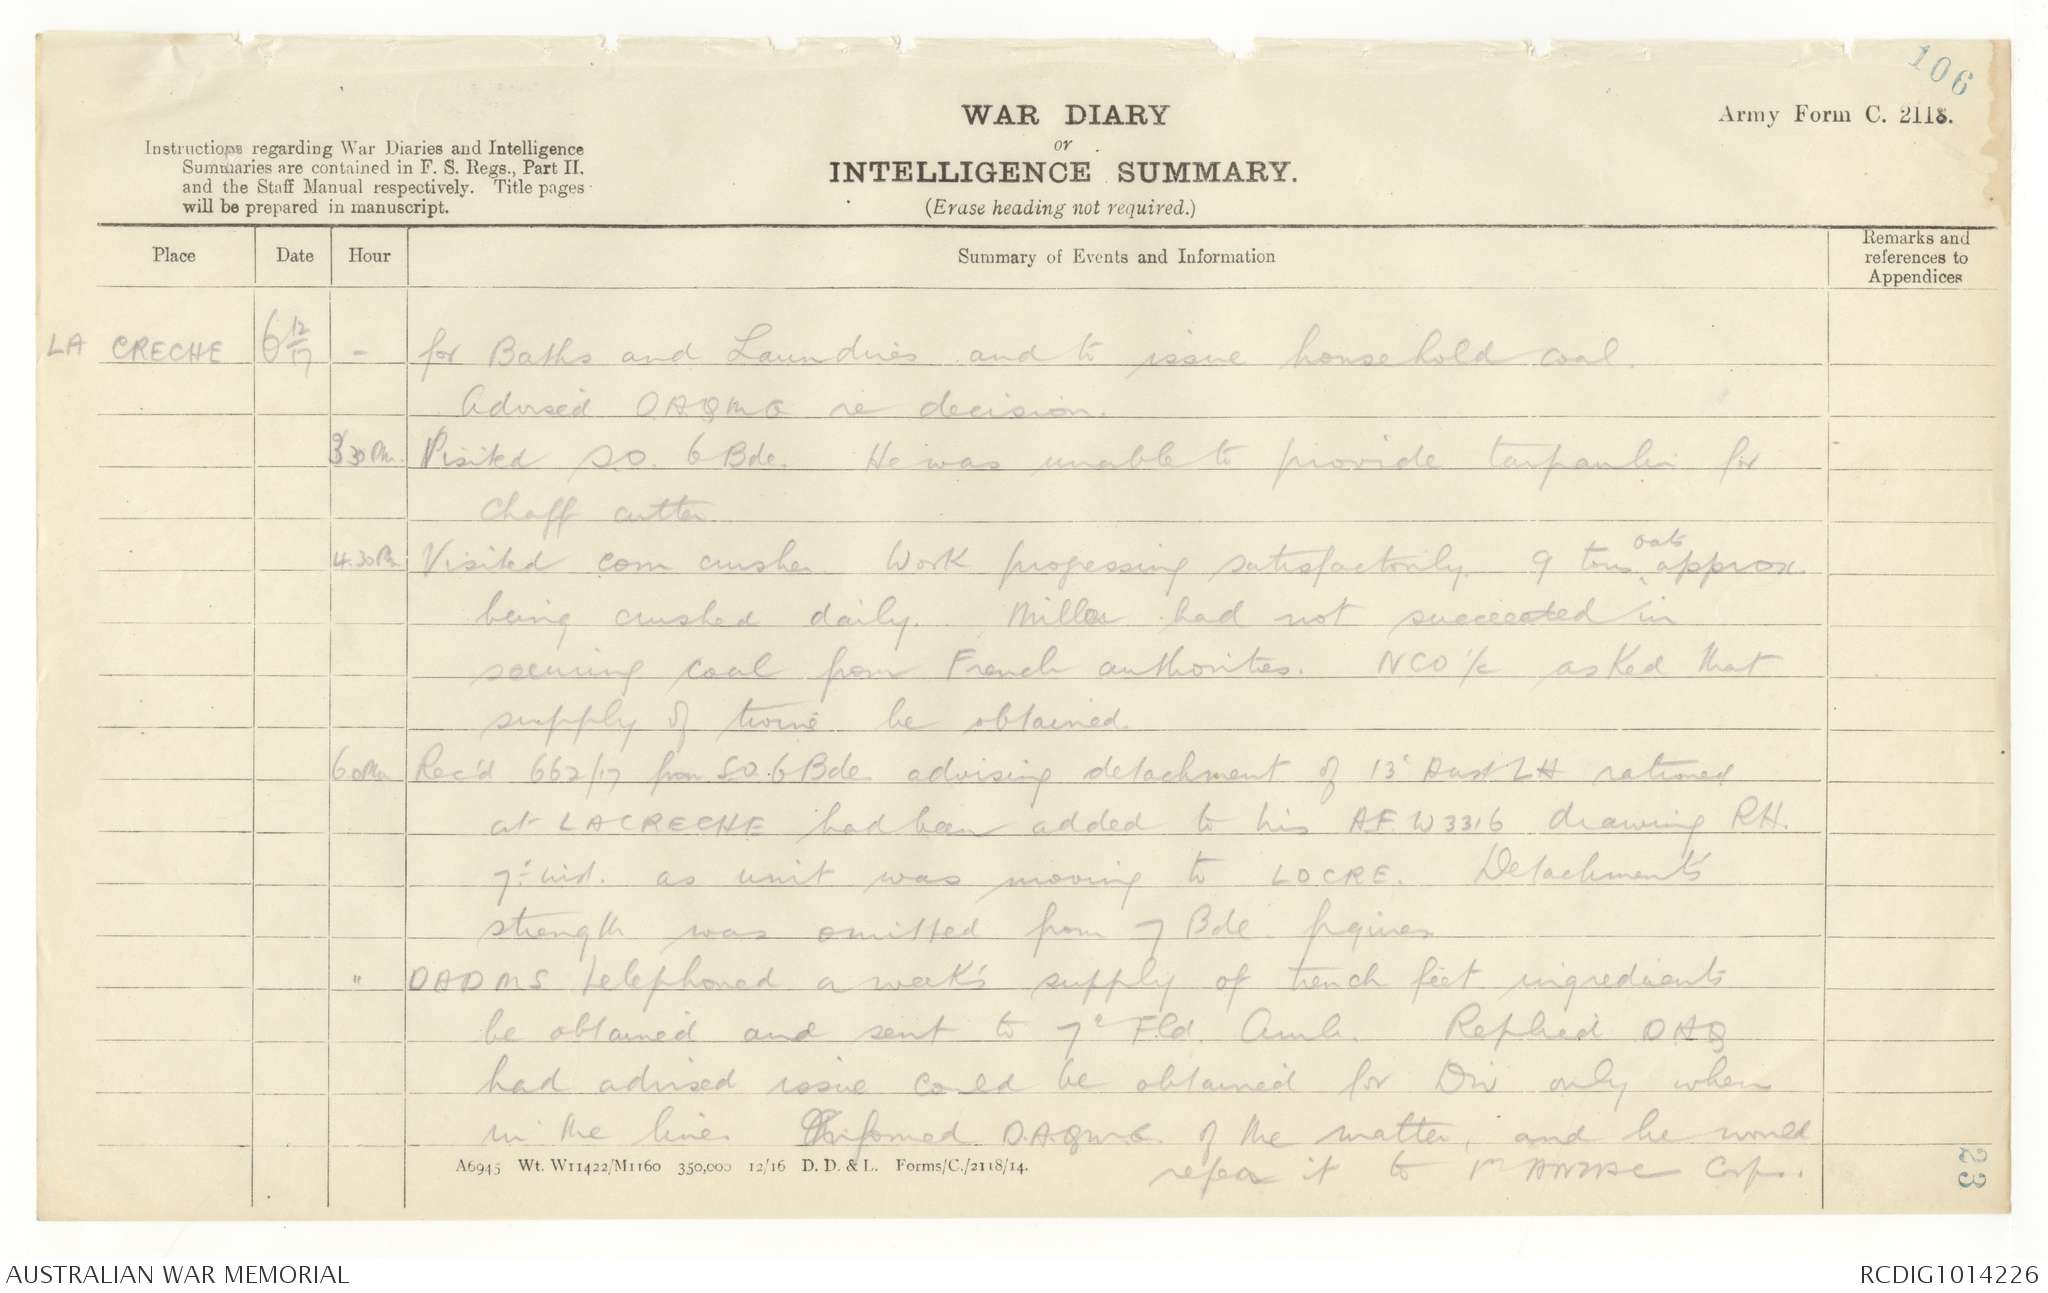 106
WAR DIARY
or
INTELLIGENCE SUMMARY.
(Erase heading not required.)
Army Form C. 2118.
Instructions regarding War Diaries and Intelligence
Summaries are contained in F. S. Regs., Part II.
and the Staff Manual respectively. Title pages
will be prepared in manuscript.
Place Date Hour Summary of Events and Information Remarks and
references to
Appendices
LA CRECHE 6 12/17 - for Baths and Laundries and to issue household coal.
Advised DAQMG re decision.
3.30 Pm. Visited S.O. 6 Bde. He was unable to provide tarpaulin for
chaff cutter
4.30 Pm Visited corn crusher Work progressing satisfactorily. 9 tons oats approx.
being crushed daily. Miller had not succeeded in
securing coal from French authorities. NCO i/c asked that
supply of twine be obtained.
6.0 Pm Rec'd 662/17 from S.O. 6 Bde advising detachment of 13' Aust LH rationed
at LACRECHE had been added to his AF W3316 drawing RH.
7' inst. as unit was moving to LOCRE. Detachment's
strength was omitted from 7 Bde. figures
" DADMS telephoned a week's supply of trench feet ingredients
be obtained and sent to 7' Fld. Amb. Replied DAQ
had advised issue could be obtained for Div only when
in the line. Informed D.A.Q.M.G. of the matter, and he would
refer it to 1st ANZAC Corps.
A6945 Wt. W11422/M1160 350,000 12/16 D. D. & L. Forms/C./2118/14.
23
AUSTRALIAN WAR MEMORIAL
RCDIG1014226